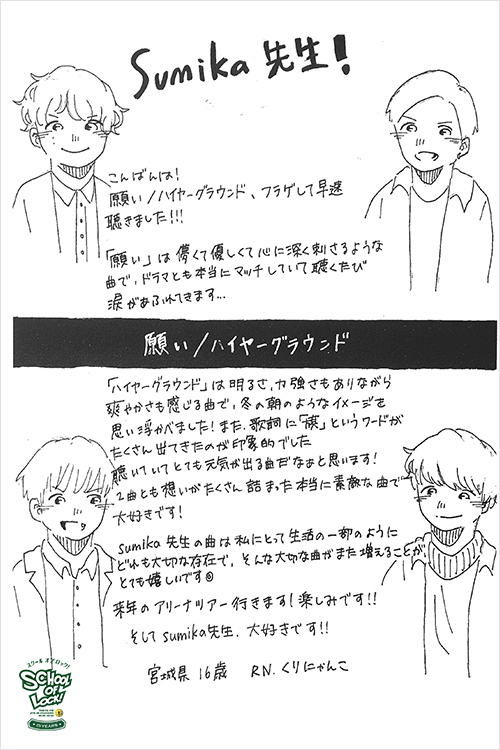 Sumika 先生!
こんばんは!
願い/ハイヤーグラウンド、フラゲして早速
聴きました!!!
「願い」は儚くて優しくて心に深く刺さるような
曲で、ドラマとも本当にマッチしていて聴くたび
涙があふれてきます...
願い/ハイヤーグラウンド
「ハイヤーグラウンド」は明るさ、力強さもありながら
爽やかさも感じる曲で、冬の朝のようなイメージを
思い浮かべました!また、歌詞に「僕」というワードが
たくさん出てきたのが印象的でした
聴いていてとても元気が出る曲だなぁと思います!
2曲とも想いがたくさん詰まった本当に素敵な曲で
大好きです!
sumika 先生の曲は私にとって生活の一部のように
どれも大切な存在で、そんな大切な曲がまた増えることが
とても嬉しいです
来年のアリーナツアー行きます!楽しみです!!
そして sumika先生、大好きです!!
宮城県 16歳 RN.くりにゃんこ
スクール オブ ロック!
SCHOOL
OF
LOCK!